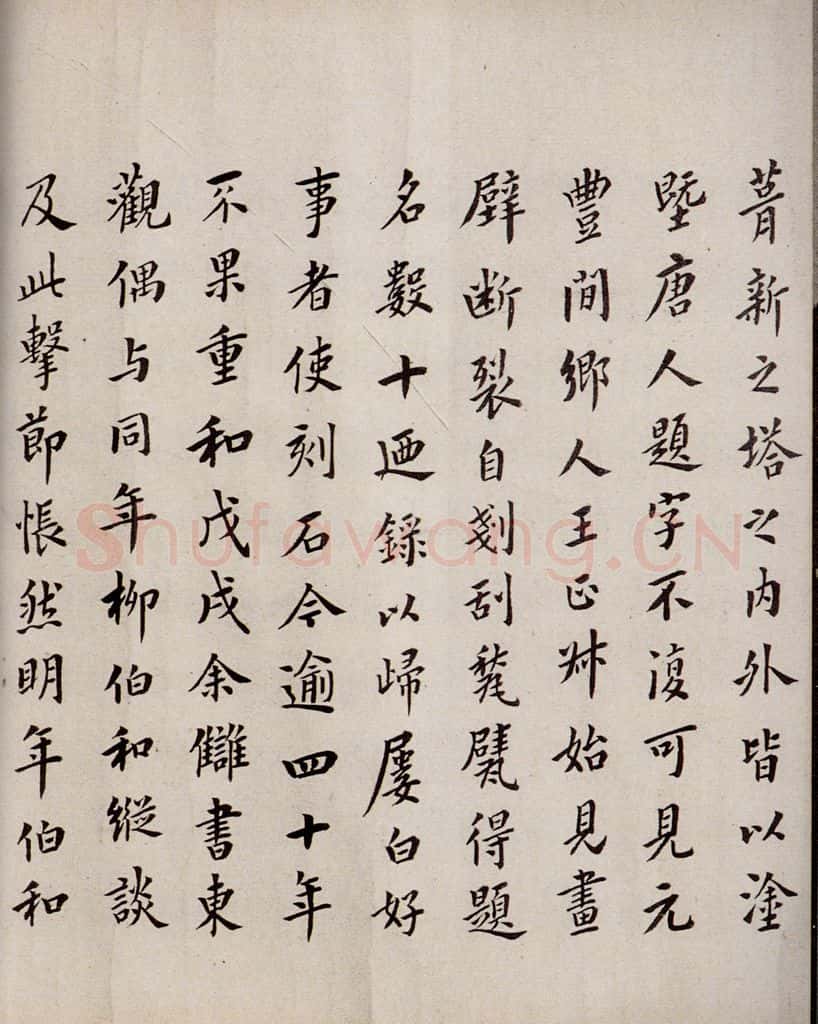 葺新之塔之内外皆以塗
墍唐人題字不復可見元
豐間鄉人王正叔始見畫
壁断裂自剗刮甃甓得題
名數十迺錄以歸屢白好
事者使刻石今逾四十年
不果重和戊戌余讎書東
觀偶与同年柳伯和縱談
及此擊節悵然明年伯和
Shufawang.CN